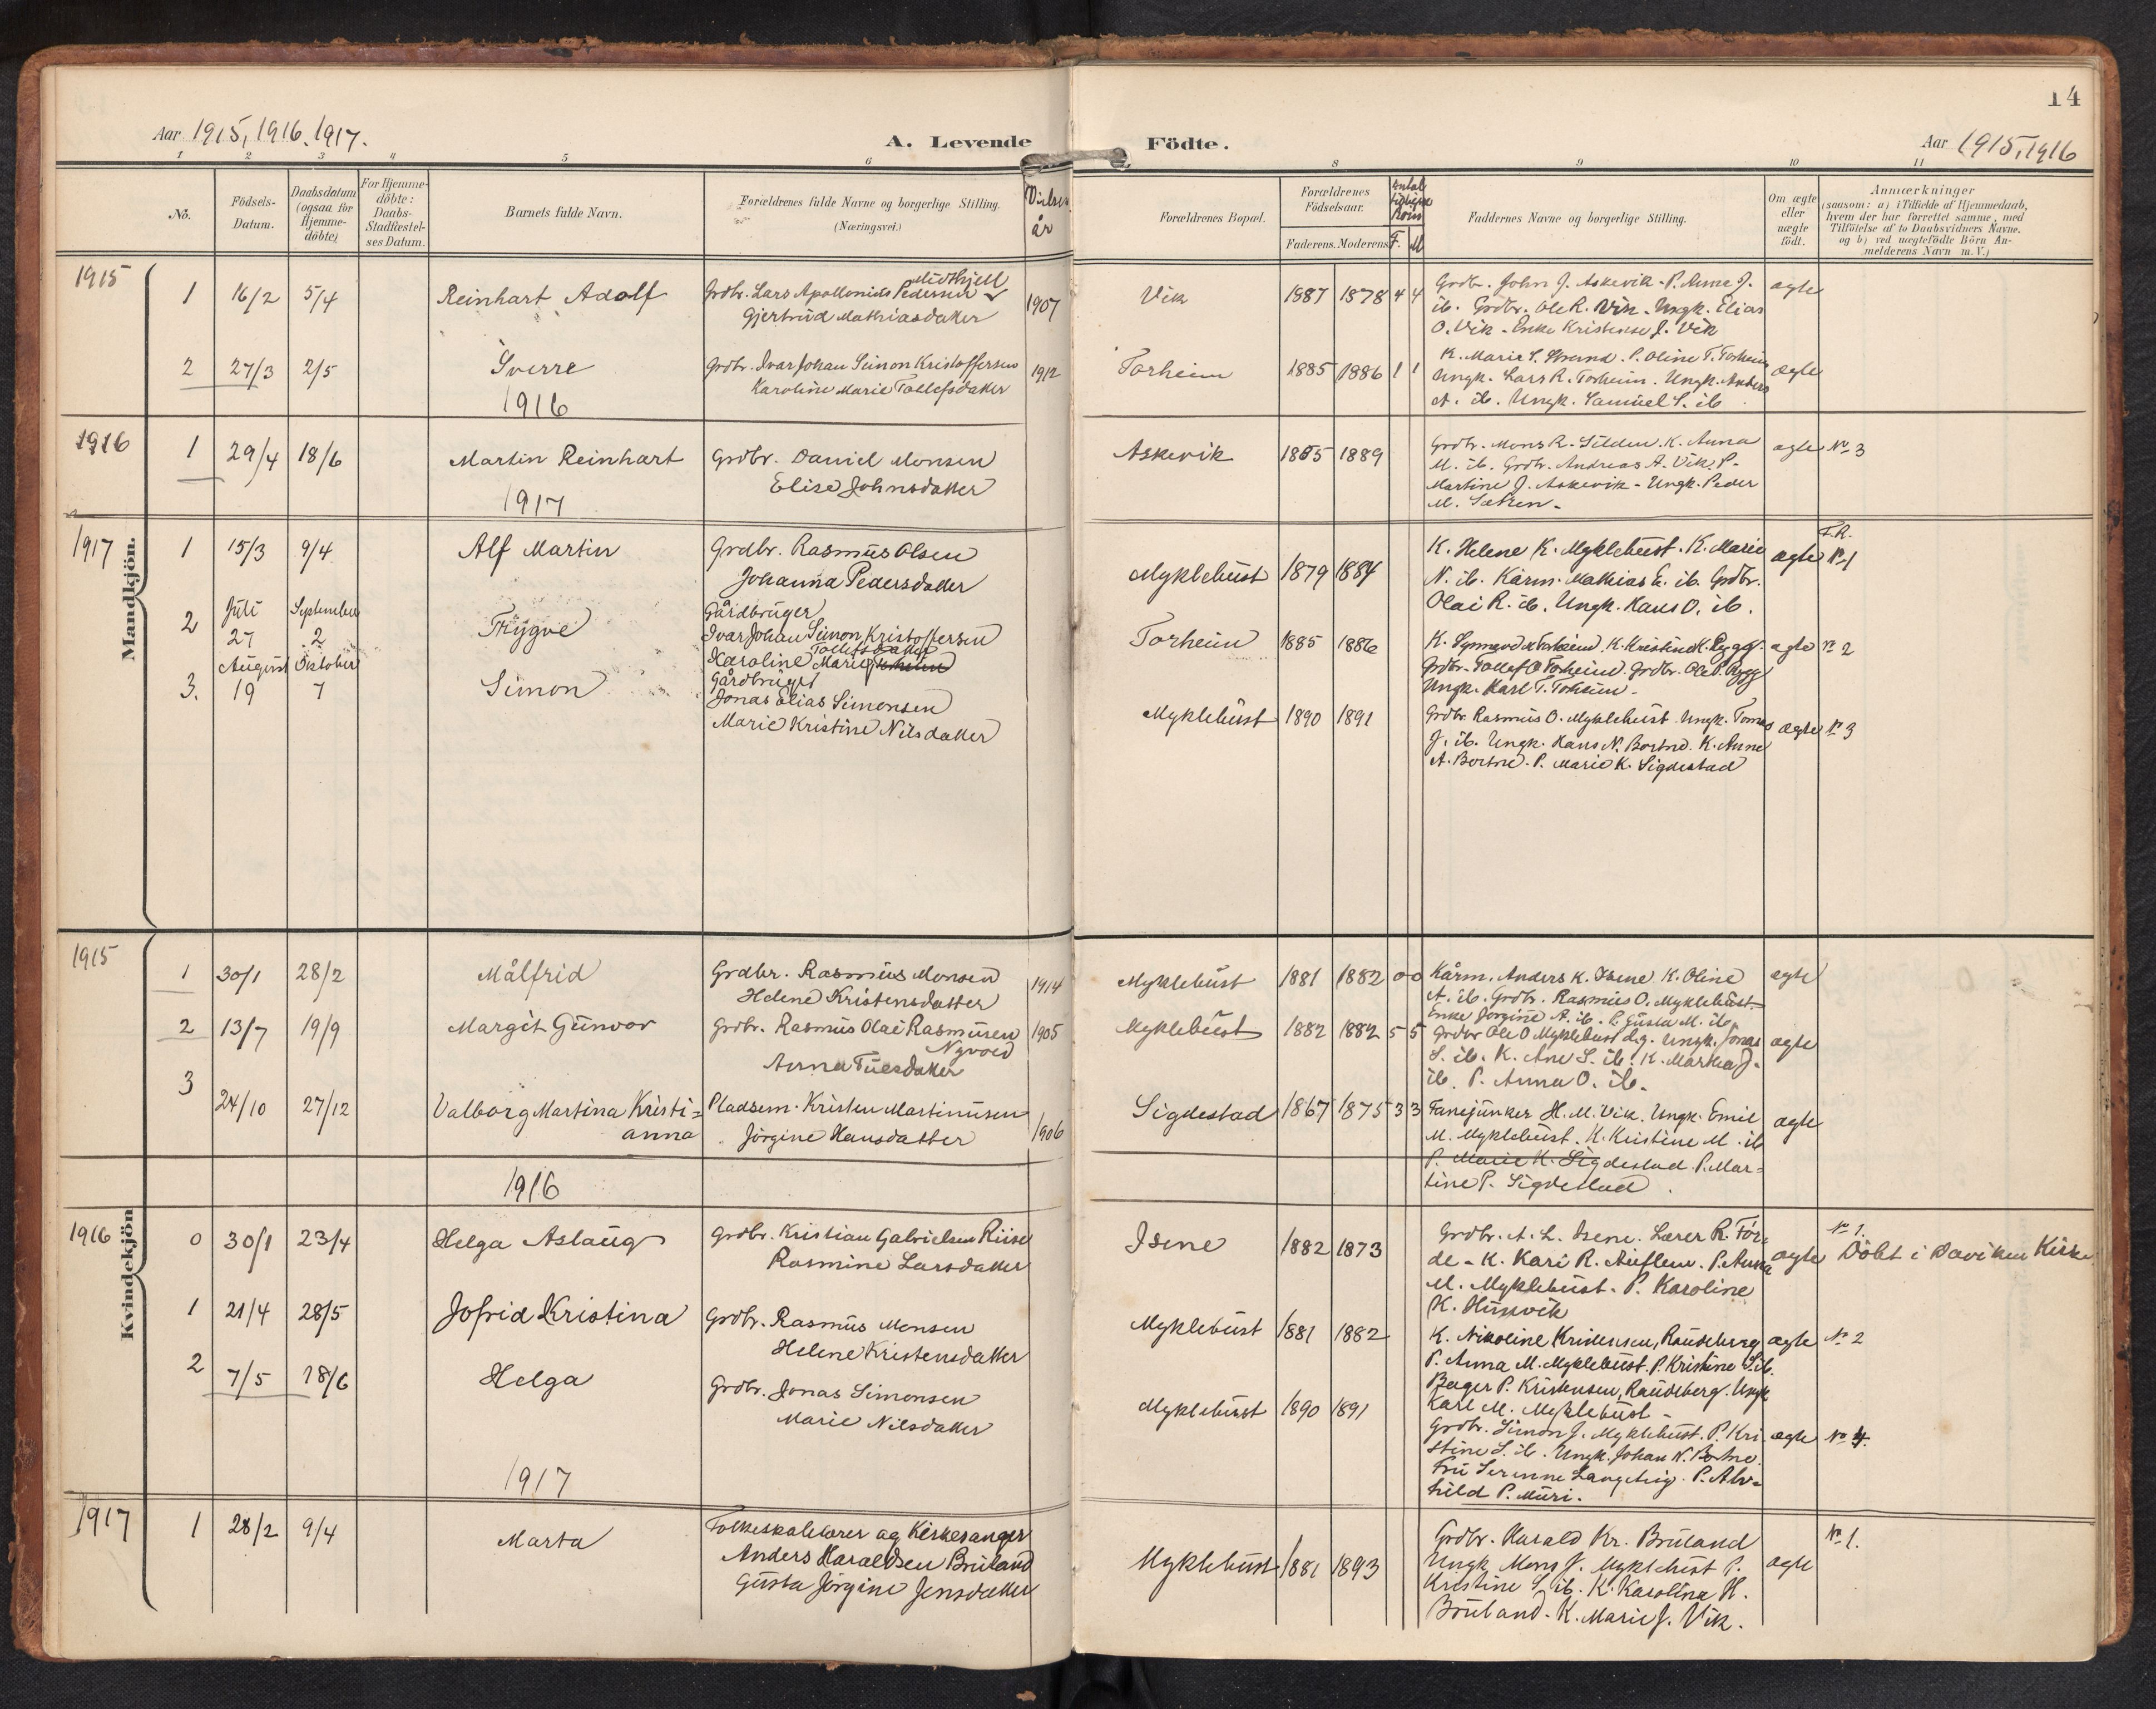 14
Aar 1915, 1916. 1917.
A. Levende
Födte.
Aar 1915, 1916
1 2 3 4 5 6
8 9 10 11
No.
Födsels-
Datum.
Daabsdatum
(ogsaa for
Hjemme-
döbte)
For Hjemme-
döbte:
Daabs-
Stadfæstel-
ses Datum.
Barnets fulde Navn.
Forældrenes fulde Navne og borgerlige Stilling.
(Næringsvei.)
Vielses
år
Forældrenes Bopæl.
Forældrenes
Födselsaar.
Faderens. Moderens.
Antal
tidligere
Börn
F. M
Faddernes Navne og borgerlige Stilling.
Om ægte
eller
uægte
födt.
Anmærkninger
(saasom: a) i Tilfælde af Hjemmedaab,
hvem der har forrettet samme, med
Tilföielse af to Daabsvidners Navne.
og b) ved uægtefödte Börn An-
melderens Navn m. V.)
Mandkjön.
1915
1 16/2 5/4 Reinhart Adolf
Grdbr. Lars Apollonius Pedersen Midthjell
Gjertrud Mathiasdatter
1907
Vik 1887 1878 4 4
Grdbr. John J. Askevik. P. Anne J.
ib. Grdbr. Ole R. Vik. Ungk. Elias
O. Vik. Enke Kristense J. Vik
ægte
2 27/3 2/5 Sverre
Grdbr. Ivar Johan Simon Kristoffersen
Karoline Marie Tollefsdatter
1912
Torheim 1885 1886 1 1
K. Marie S. Strand. P. Oline T. Torheim
Ungk. Lars R. Torheim. Ungk. Anders
A. ib. Ungk. Samuel S. ib
ægte
1916
1916
1 29/4 18/6 Martin Reinhart
Grdbr. Daniel Monsen
Elise Johnsdatter
Askevik 1885 1889
Grdbr. Mons R. Silden. K. Anna
M. ib. Grdbr. Andreas A. Vik. P.
Martine J. Askevik - Ungk. Peder
M. Sætren.
ægte No 3
1917
1917
1 15/3 9/4 Alf Martin
Grdbr. Rasmus Olsen
Johanna Pedersdatter
Myklebust 1879 1884
K. Helene K. Myklebust. K. Marie
N. ib. Kårm. Mathias E. ib. Grdbr.
Olai R. ib. Ungk. Hans O. ib.
ægte
F.R.
No 1
2 Juli 27 September 2 Trygve
Gårdbruger
Ivar Johan Simon Kristoffersen
Karoline Marie Tollefsdatter
Torheim 1885 1886
K. Synneva Torheim. K. Kristine K. Rygg.
Grdbr. Tollef O Torheim. Grdbr. Ole P. Rygg
Ungk. Karl T. Torheim.
ægte No 2
3. August 19 Oktober 7 Simon
Gårdbruger
Jonas Elias Simonsen
Marie Kristine Nilsdatter
Myklebust 1890 1891
Grdbr. Rasmus O. Myklebust. Ungk. Tomas
J. ib. Ungk. Hans N. Bortne. K. Anne
A. Bortne. P. Marie K. Sigdestad
ægte No 3
Kvindekjön
1915
1 30/1 28/2 Målfrid
Grdbr. Rasmus Monsen
Helene Kristensdatter
1914
Myklebust 1881 1882 0 0
Kårm. Anders K. Isene K. Oline
A. ib. Grdbr. Rasmus O. Myklebust.
Enke Jörgine A. ib. P. Gusta M. ib.
ægte
2 13/7 19/9 Margit Gunvor
Grdbr. Rasmus Olai Rasmusen
Nyvold
Anna Tuesdatter
1905
Myklebust 1882 1882 5 5
Grdbr Ole O Myklebust d.y. Ungk. Jonas
S. ib. K. Ane S. ib. K. Marthea J.
ib. P. Anna O. ib.
ægte
3 24/10 27/12 Valborg Martina Kristi=
anna
Pladsem. Kristen Martinusen
Jörgine Hansdatter
1906
Sigdestad 1867 1875 3 3
Fanejunker H. M. Vik. Ungk. Emil
M. Myklebust. K. Kristine M. ib
P. Marie K. Sigdestad. P. Mar=
tine P. Sigdestad.
ægte
1916
1916
0 30/1 23/4 Helga Aslaug
Grdbr. Kristian Gabrielsen Riise
Rasmine Larsdatter
Isene 1882 1873
Grdbr. A. L. Isene. Lærer R. För=
de. K. Kari R. Aueflem. P. Anna
M. Myklebust. P. Karoline
K. Husvik
ægte
No 1.
Döbt i Daviken Kirke
1 21/4 28/5 Jofrid Kristina
Grdbr. Rasmus Monsen
Helene Kristensdatter
Myklebust 1881 1882
K. Nikoline Kristensen, Raudeberg
P. Anna M. Myklebust. P. Kristine S. ib.
Bager P. Kristensen, Raudeberg. Ungk
Karl M. Myklebust.
ægte No 2
2 7/5 18/6 Helga
Grdbr. Jonas Simonsen
Marie Nilsdatter
Myklebust 1890 1891
Grdbr. Simon J. Myklebust. P. Kri
stine S. ib. Ungk. Johan N. Bortne.
Fru Serenne Langeteig. P. Alv=
hild P. Muri.
ægte No 4.
1917
1917
1 28/2 9/4 Marta
Folkeskolelærer og Kirkesanger
Anders Haraldsen Bruland
Gusta Jörgine Jensdatter
Myklebust 1881 1893
Grdbr. Harald Kr. Bruland
Ungk Mons J. Myklebust P.
Kristine S. ib. K. Karolina H.
Bruland. K. Marie J. Vik.
ægte
No 1.